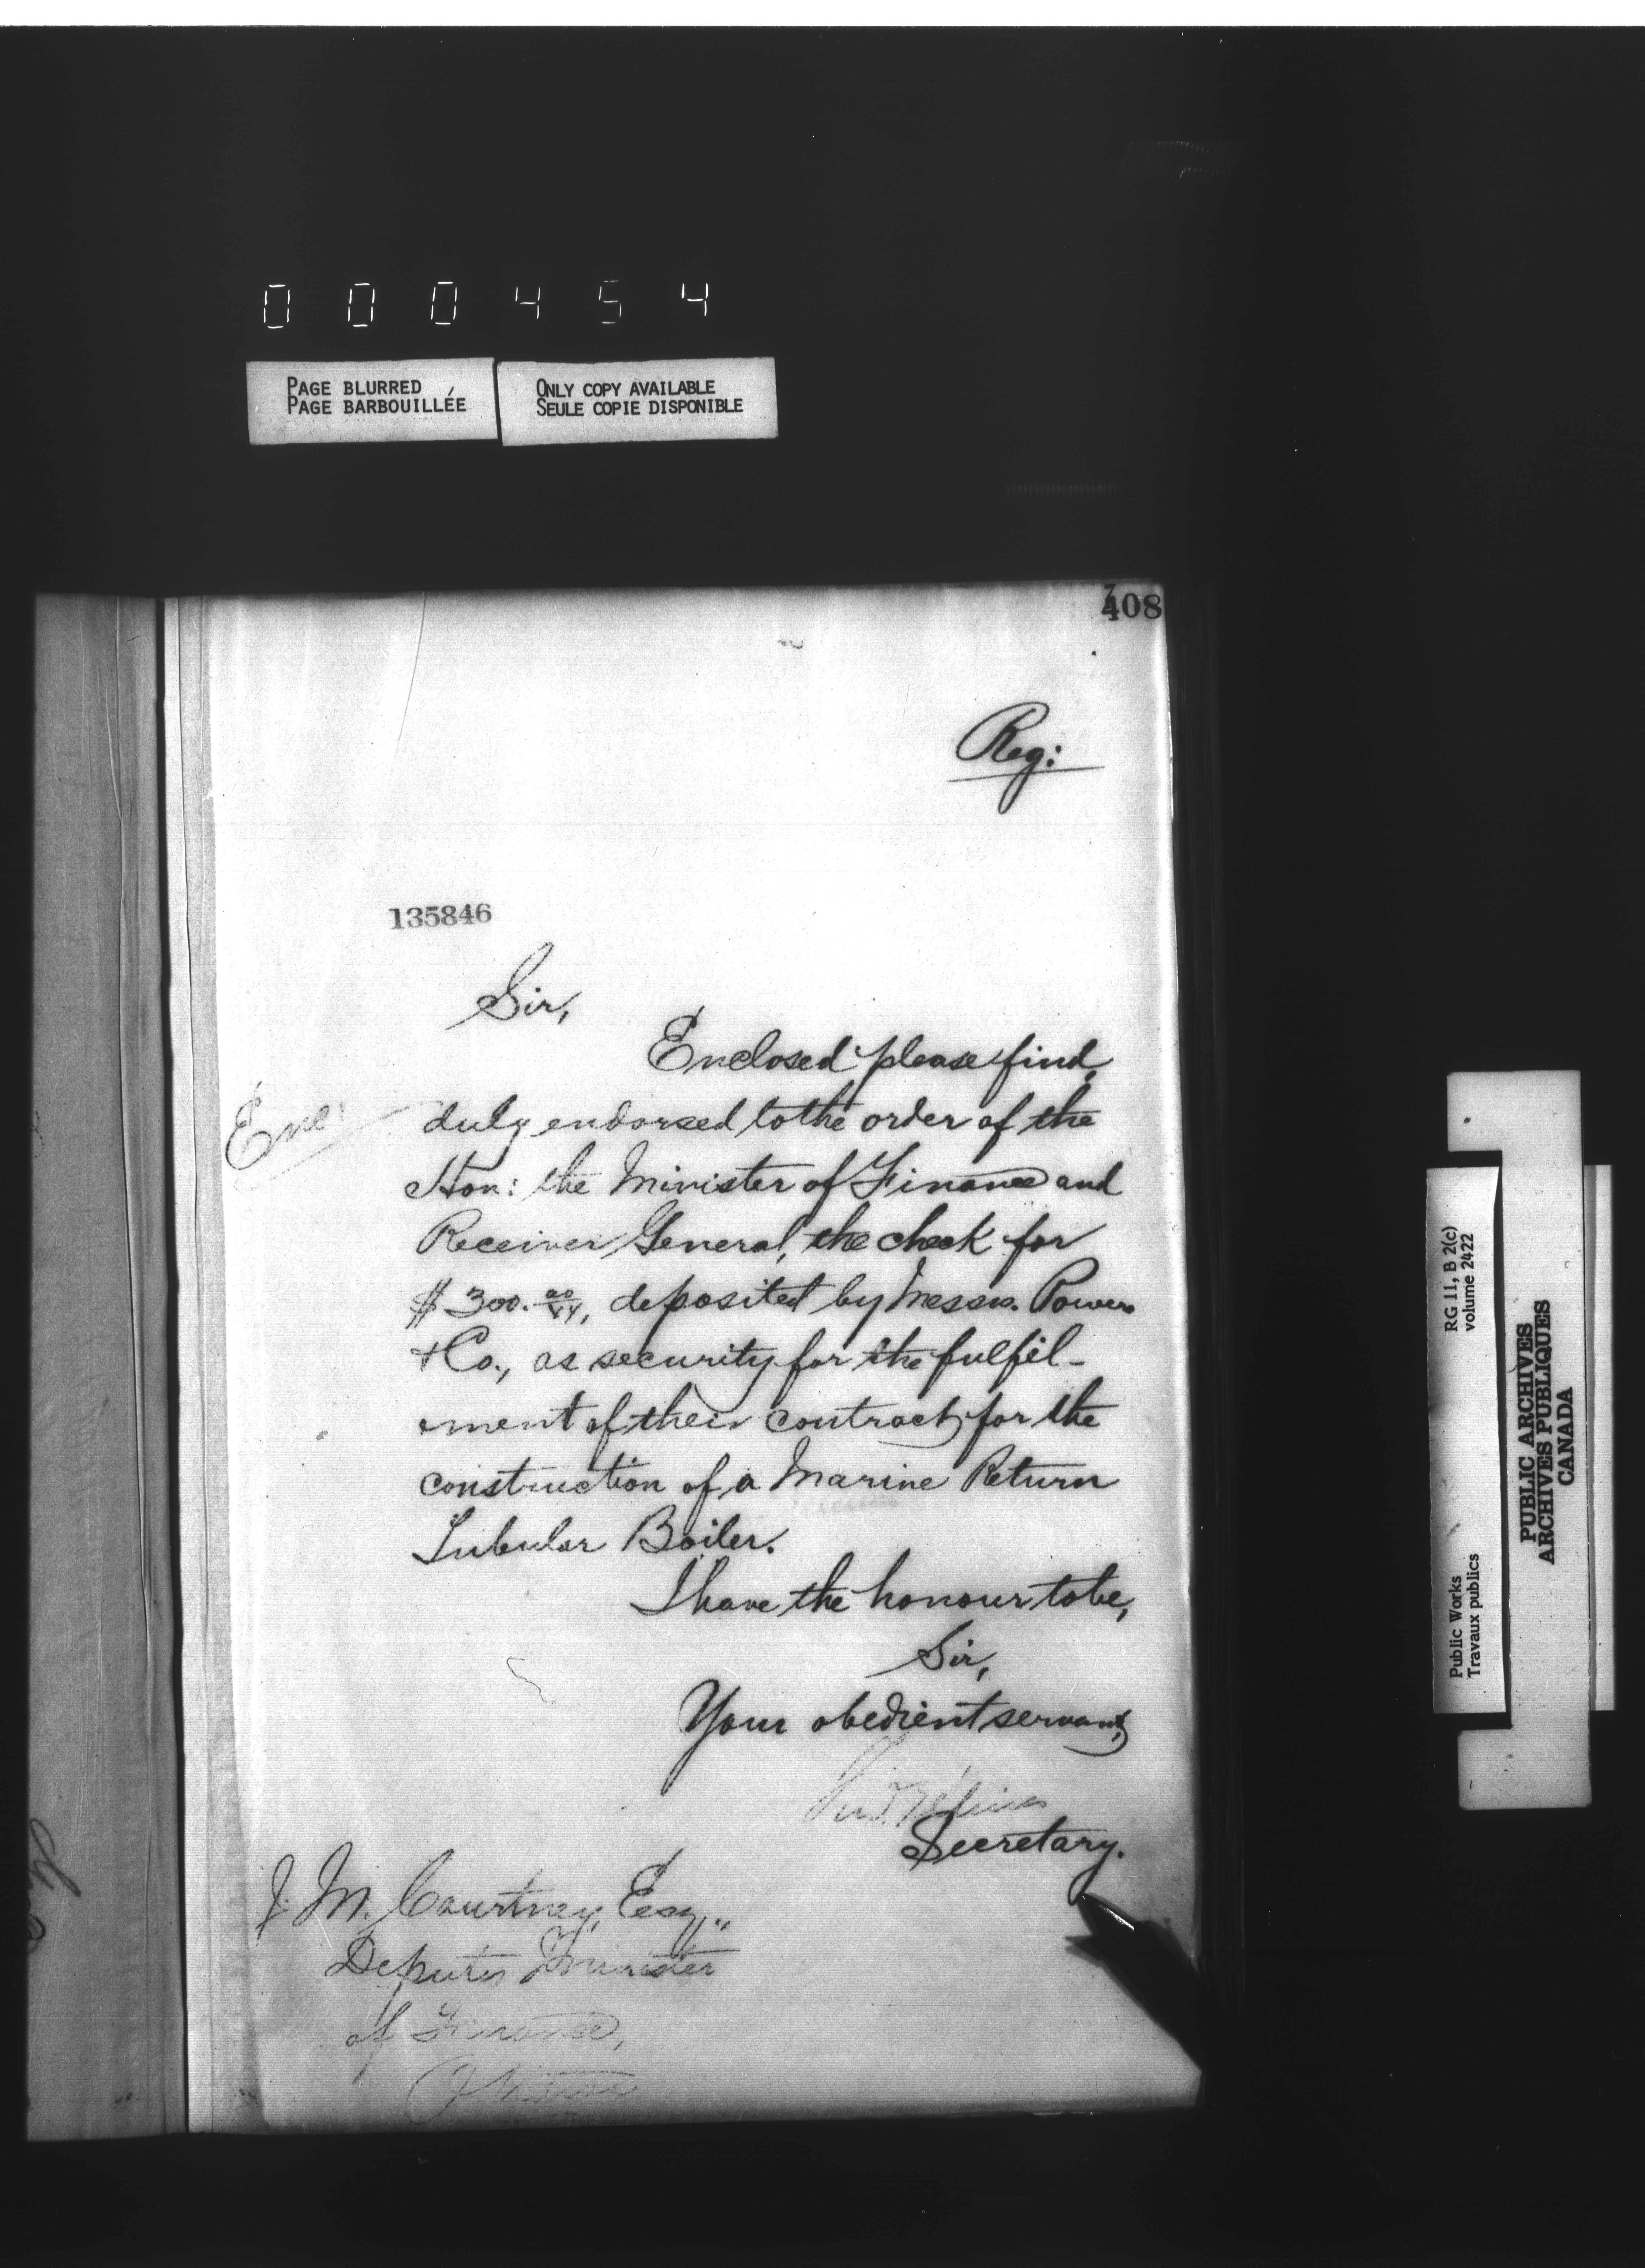 000454
PAGE BLURRED
PAGE BARBOUILLÉE
ONLY COPY AVAILABLE
SEULE COPIE DISPONIBLE
408
Reg:
135846
Sir,
Enclosed please find,
Enc:
duly endorsed to the order of the
Hon: the Minister of Finance and
Receiver General, the check for
$300. 00/xx, deposited by Messrs. Power
& Co., as security for the fulfil-
ment of their contract for the
construction of a Marine Return
Tubular Boiler.
I have the honour to be,
Sir,
Your obedient servant,
Secretary.
J. M. Courtney, Esq.,
Deputy Minister
of Finance,
Ottawa
RG 11, B 2(c)
volume 2422
Public Works
Travaux publics
PUBLIC ARCHIVES
ARCHIVES PUBLIQUES
CANADA